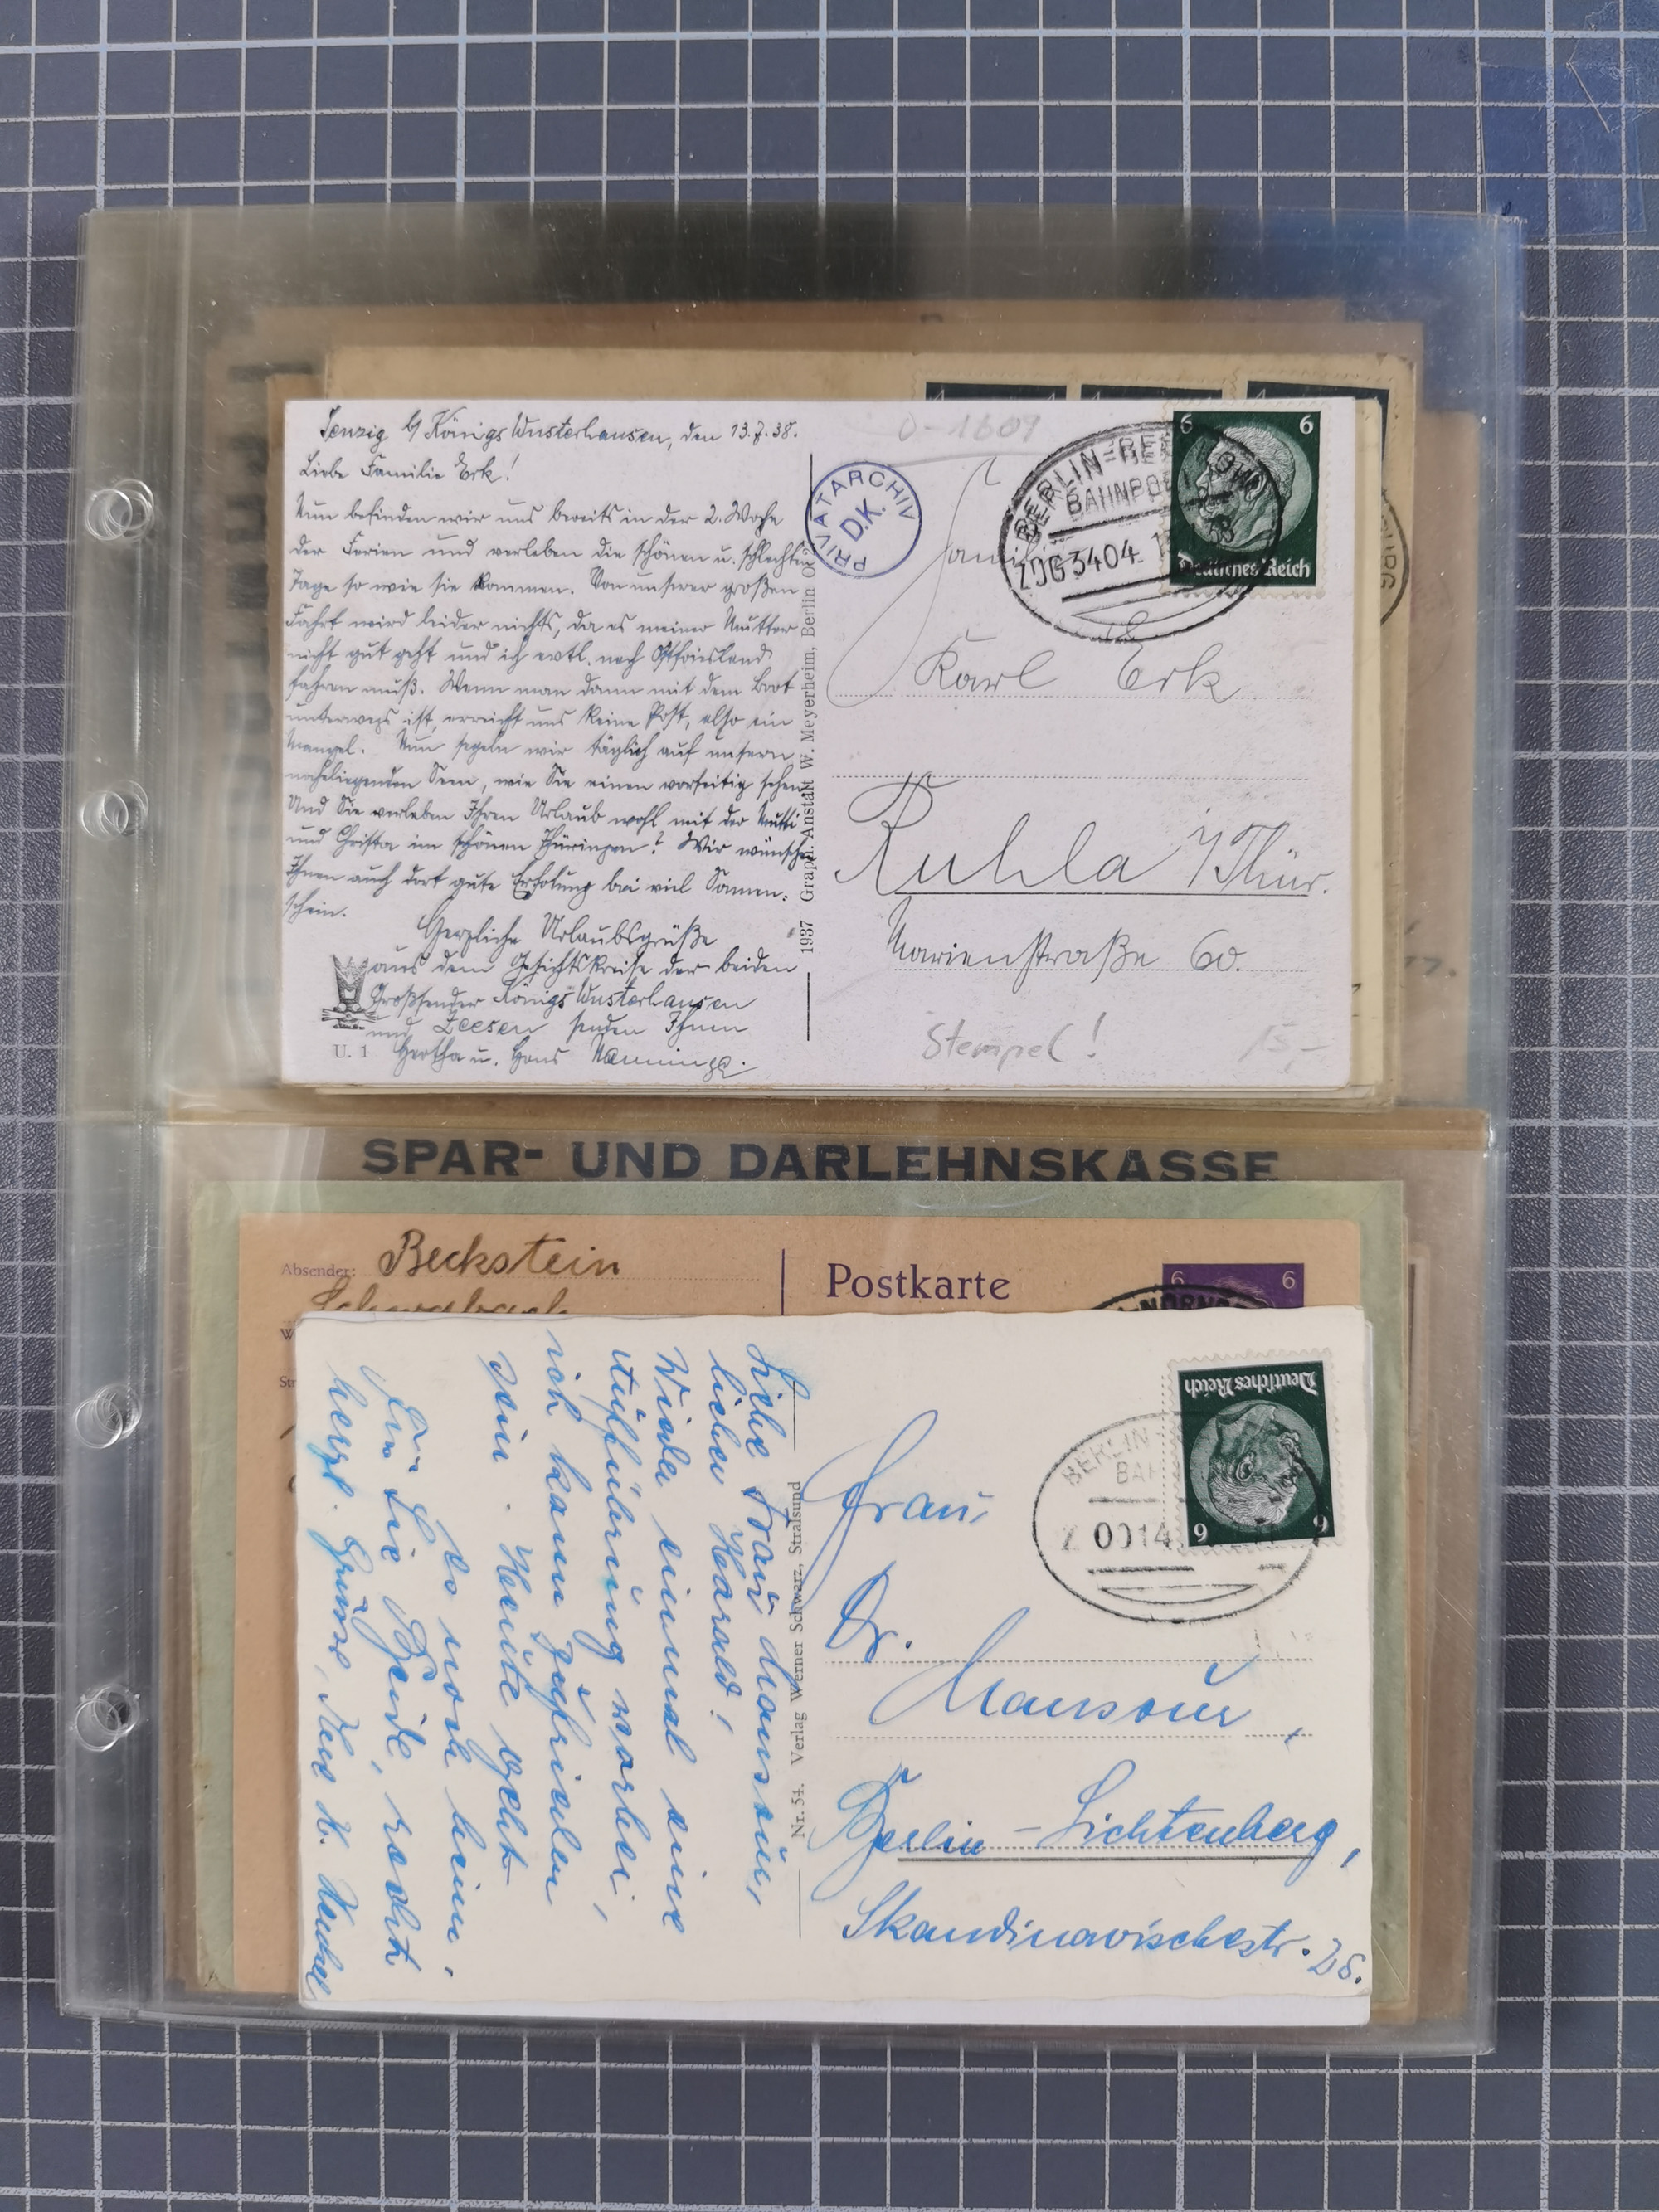 Senzig b/ Königs Wusterhausen, den 13.7.38.
Liebe Familie Erk!
Nun befinden wir uns bereits in der 2. Woche
der Ferien und verleben die schönen u. schlechten
Tage so wie sie kommen. Von unserer großen
Fahrt wird leider nichts, da es meiner Mutter
nicht gut geht und ich evtl. nach Ostfriesland
fahren muß. Wenn man dann mit dem Boot
unterwegs ist, erreicht uns keine Post, also ein
Mangel. Nun segeln wir täglich auf unsern
naheliegenden Seen, wie Sie einen vorseitig sehen.
Und Sie verleben Ihren Urlaub wohl mit der Mutti
und Christa im schönen Thüringen? Wir wünschen
Ihnen auch dort gute Erholung bei viel Sonnen-
schein.
Herzliche Urlaubsgrüße
aus dem Gesichtskreise der beiden
Großsender Königs Wusterhausen
und Zeesen senden Ihnen
Hertha u. Hans
U. 1
1937 Graph. Anstalt W. Meyerheim, Berlin
PRIVATARCHIV
D.K.
0-1607
BAHNPOST
ZUG 3404
6 6
Deutsches Reich
Familie
Karl Erk
Ruhla i/Thür.
Marienstraße 60.
Stempel!
15,-
SPAR- UND DARLEHNSKASSE
Absender: Beckstein
Schwabach
Postkarte
6 6
Liebe Frau Mansour,
lieber Harald!
Wieder einmal eine
Aufführung vorbei,
ich kann zufrieden
sein. Heute geht
es noch heim.
Für Sie Beide, recht
herzl. Grüsse, Ihre
Nr. 54. Verlag Werner Schwarz, Stralsund
BERLIN
BAH
Z 0014
Deutsches Reich
6 6
Frau
Dr.
Mansour,
Berlin-Lichtenberg,
Skandinavischestr. 26.